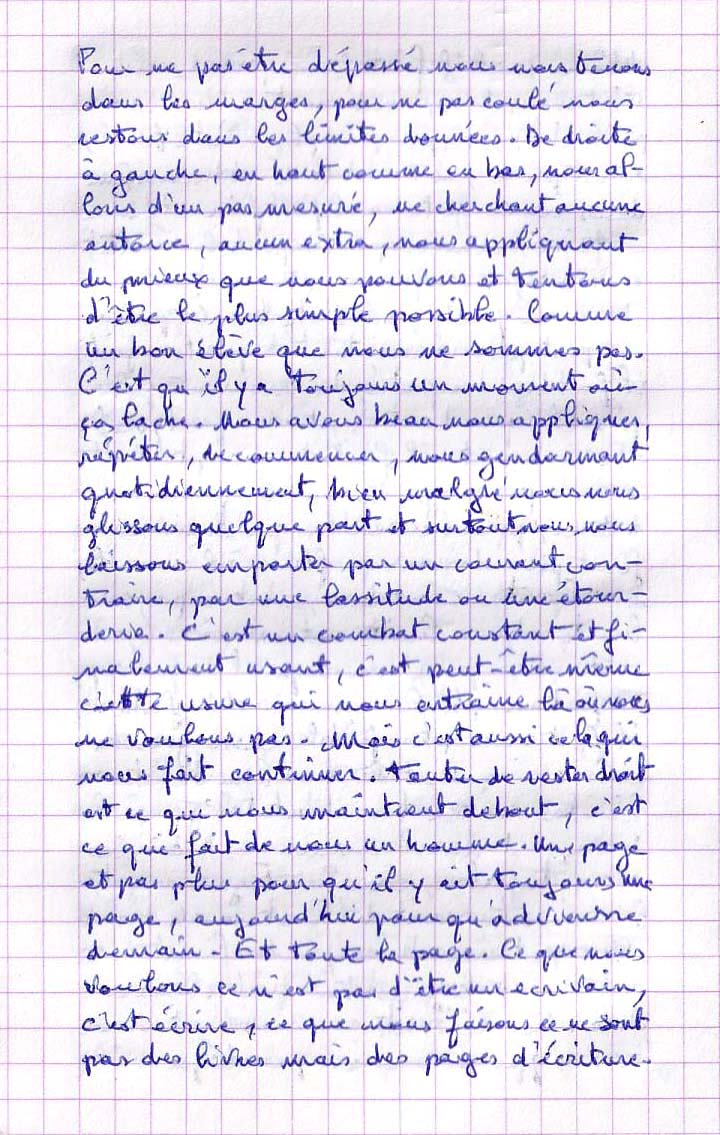 Pour ne pas être dépassé nous nous tenons
dans les marges, pour ne pas coulé nous
restons dans les limites données. De droite
à gauche, en haut comme en bas, nous al-
lons d'un pas mesuré, ne cherchant aucune
entorce, aucun extra, nous appliquant
du mieux que nous pouvons et tentons
d'être le plus simple possible. Comme
un bon élève que nous ne sommes pas.
C'est qu'il y a toujours un moment où
ça lache. Nous avons beau nous appliquer,
répéter, recommencer, nous gendarmant
quotidiennement, bien malgré nous nous
glissons quelque part et surtout nous nous
laissons emporter par un courant con-
traire, par une lassitude ou une étour-
derie. C'est un combat constant et fi-
nalement usant, c'est peut-être même
cette usure qui nous entraîne là où nous
ne voulons pas. Mais c'est aussi cela qui
nous fait continuer. Tenter de rester droit
est ce qui nous maintient debout, c'est
ce qui fait de nous un homme. Une page
et pas plus pour qu'il y ait toujours une
page, aujourd'hui pour qu'advienne
demain. Et toute la page. Ce que nous
voulons ce n'est pas d'être un ecrivain,
c'est écrire, ce que nous faisons ce ne sont
pas des livres mais des pages d'écriture.